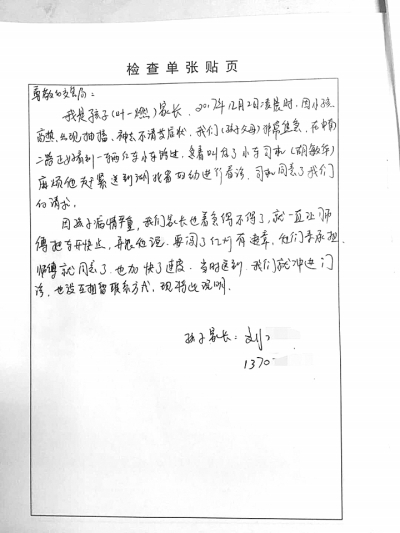 检查单张贴页
尊敬的交警局:
我是孩子(叶一燃)家长,2017年12月2日凌晨时,因小孩
高热,出现抽搐,神志不清等症状,我们(孩子父母)非常焦急,在中南
二路正好看到一辆红车小车路过,急着叫停了小车司机(胡敏华)
麻烦他赶紧送到湖北省妇幼进行看诊,司机同意了我们
的请求。
因孩子病情严重,我们家长也着急得不得了,就一直让师
傅把车开快点,哥哥他说,要闯了红灯有违章,他们去承担
师傅就同意了,也加快了速度,当时送到,我们就冲进门
诊,也没互相留联系方式,现特此说明。
孩子家长:
1370